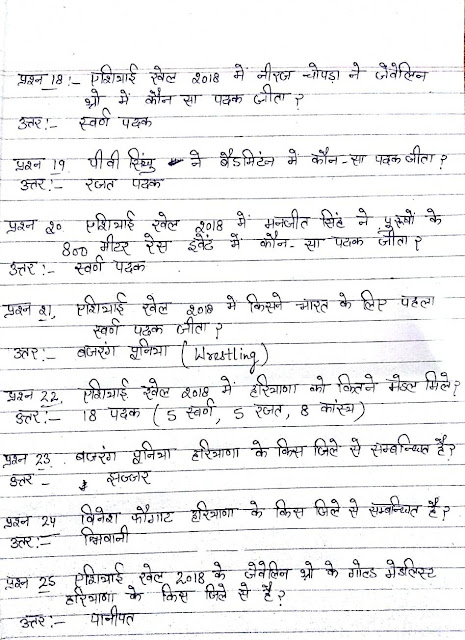 प्रश्न 18:- एशियाई खेल 2018 में नीरज चोपड़ा ने जेवेलिन
थ्रो में कौन सा पदक जीता?
उत्तर:- स्वर्ण पदक
प्रश्न 19. पी वी सिंधु ने बैडमिंटन में कौन-सा पदक जीता?
उत्तर:- रजत पदक
प्रश्न 20 एशियाई खेल 2018 में मनजीत सिंह ने पुरुषों के
800 मीटर रेस इवेंट में कौन-सा पदक जीता?
उत्तर:- स्वर्ण पदक
प्रश्न 21. एशियाई खेल 2018 में किसने भारत के लिए पहला
स्वर्ण पदक जीता?
उत्तर:- बजरंग पुनिया (Wrestling)
प्रश्न 22. एशियाई खेल 2018 में हरियाणा को कितने मेडल मिले?
उत्तर:- 18 पदक (5 स्वर्ण, 5 रजत, 8 कांस्य)
प्रश्न 23. बजरंग पुनिया हरियाणा के किस जिले से सम्बन्धित है?
उत्तर - झज्जर
प्रश्न 24 विनेश फौगाट हरियाणा के किस जिले से सम्बन्धित है?
उत्तर:- भिवानी
प्रश्न 25 एशियाई खेल 2018 के जेवेलिन थ्रो के गोल्ड मेडलिस्ट
हरियाणा के किस जिले से है?
उत्तर:- पानीपत